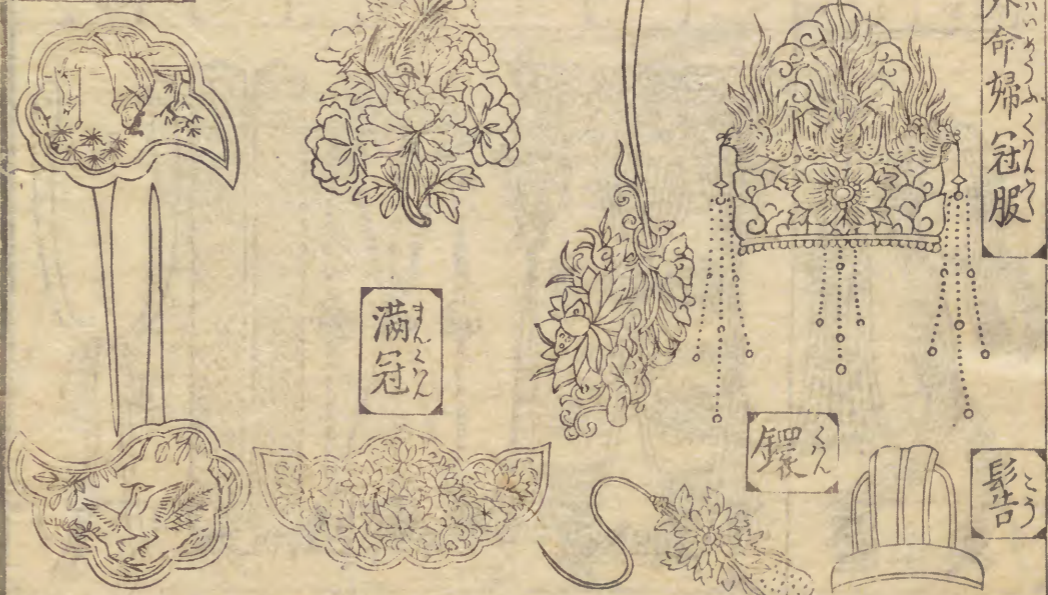 外命婦冠服
ぐわいめうふくわんふく
髻
こう
鐶
くわん
満冠
まんくわん